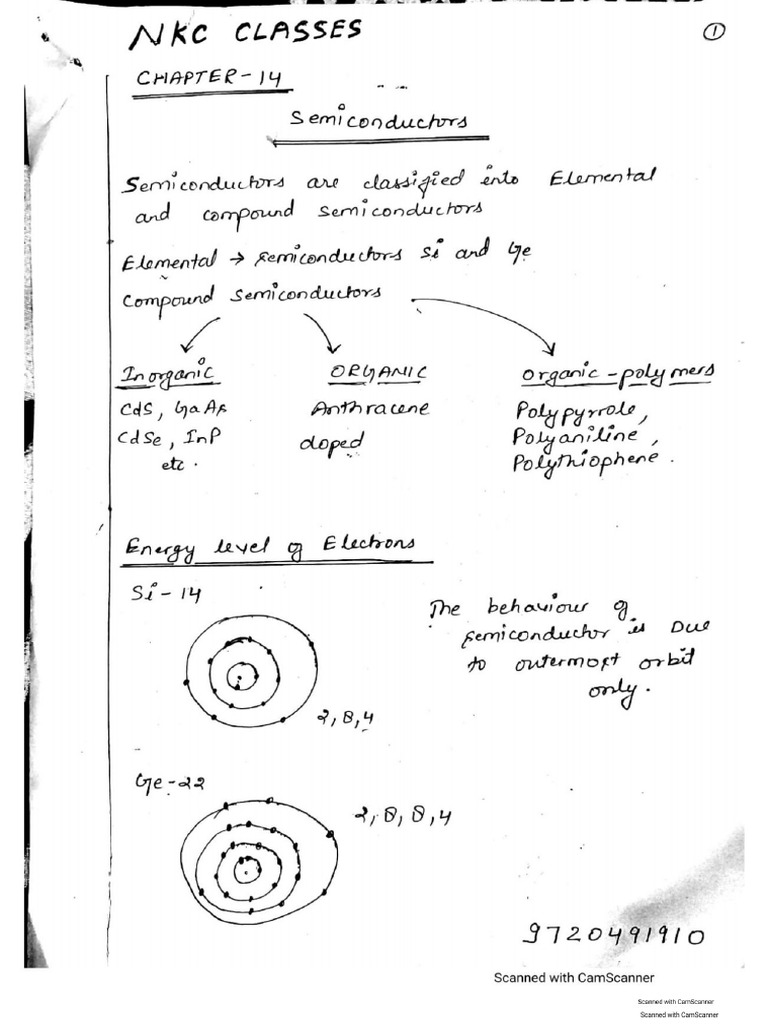 NKC CLASSES
1
CHAPTER-14
Semiconductors
Semiconductors are classified into Elemental
and compound semiconductors
Elemental → semiconductors Si and Ge
Compound semiconductors
Inorganic ORGANIC Organic-polymers
CdS, GaAs Anthracene Polypyrrole,
CdSe, InP doped Polyaniline,
etc. Polythiophene.
Energy level of Electrons
Si-14
The behaviour of
semiconductor is Due
to outermost orbit
only.
2,8,4
Ge-22
2,8,8,4
9720491910
Scanned with CamScanner
Scanned with CamScanner
Scanned with CamScanner